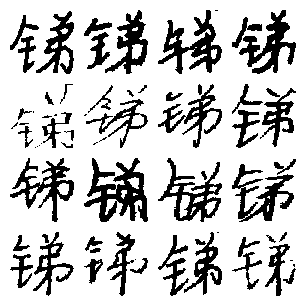 锑锑锑锑
锑锑锑锑
锑锑锑锑
锑锑锑锑